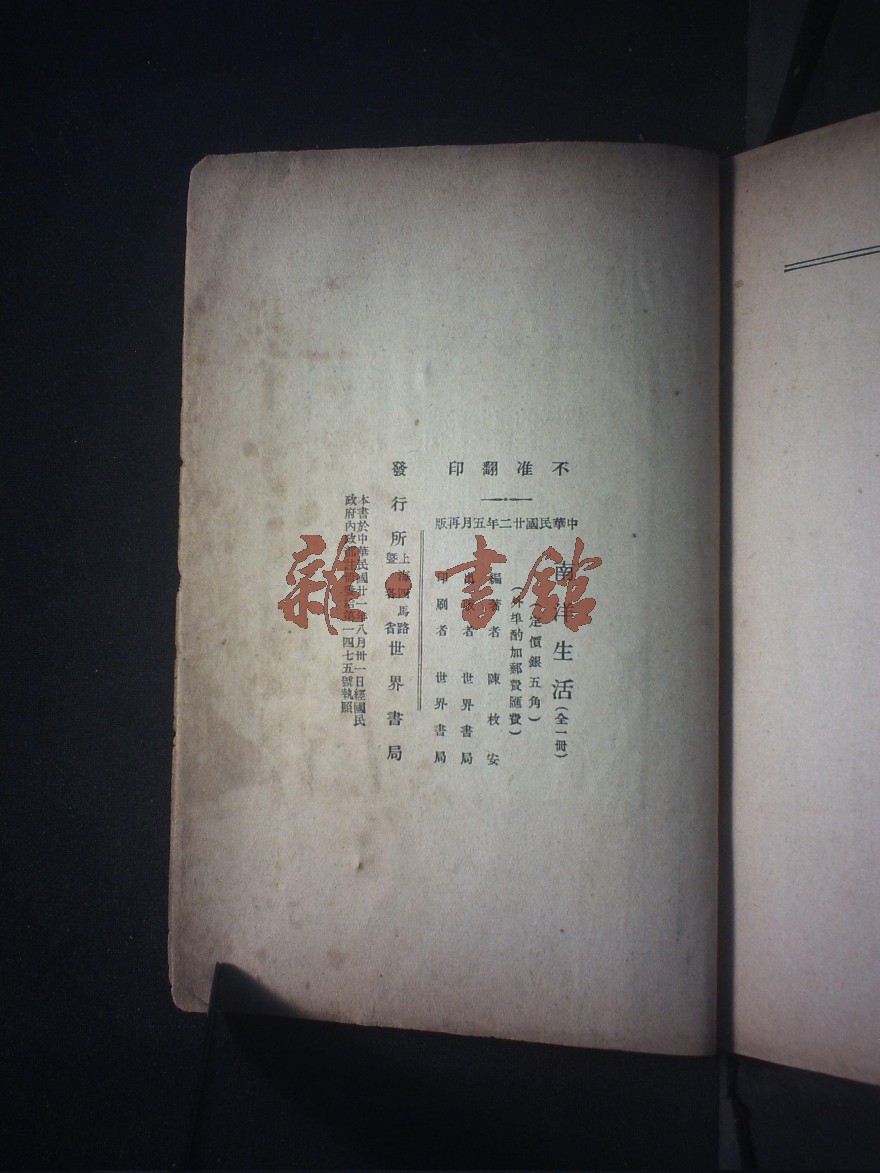 不准翻印
中華民國廿二年五月再版
南洋生活(全一冊)
(定價銀五角)
(外埠酌加郵費匯費)
編著者 陳枚安
出版者 世界書局
印刷者 世界書局
發行所 上海四馬路暨各省 世界書局
本書於中華民國廿一年八月卅一日經國民
政府內政部註冊發給第一四七五號執照
雜·書館